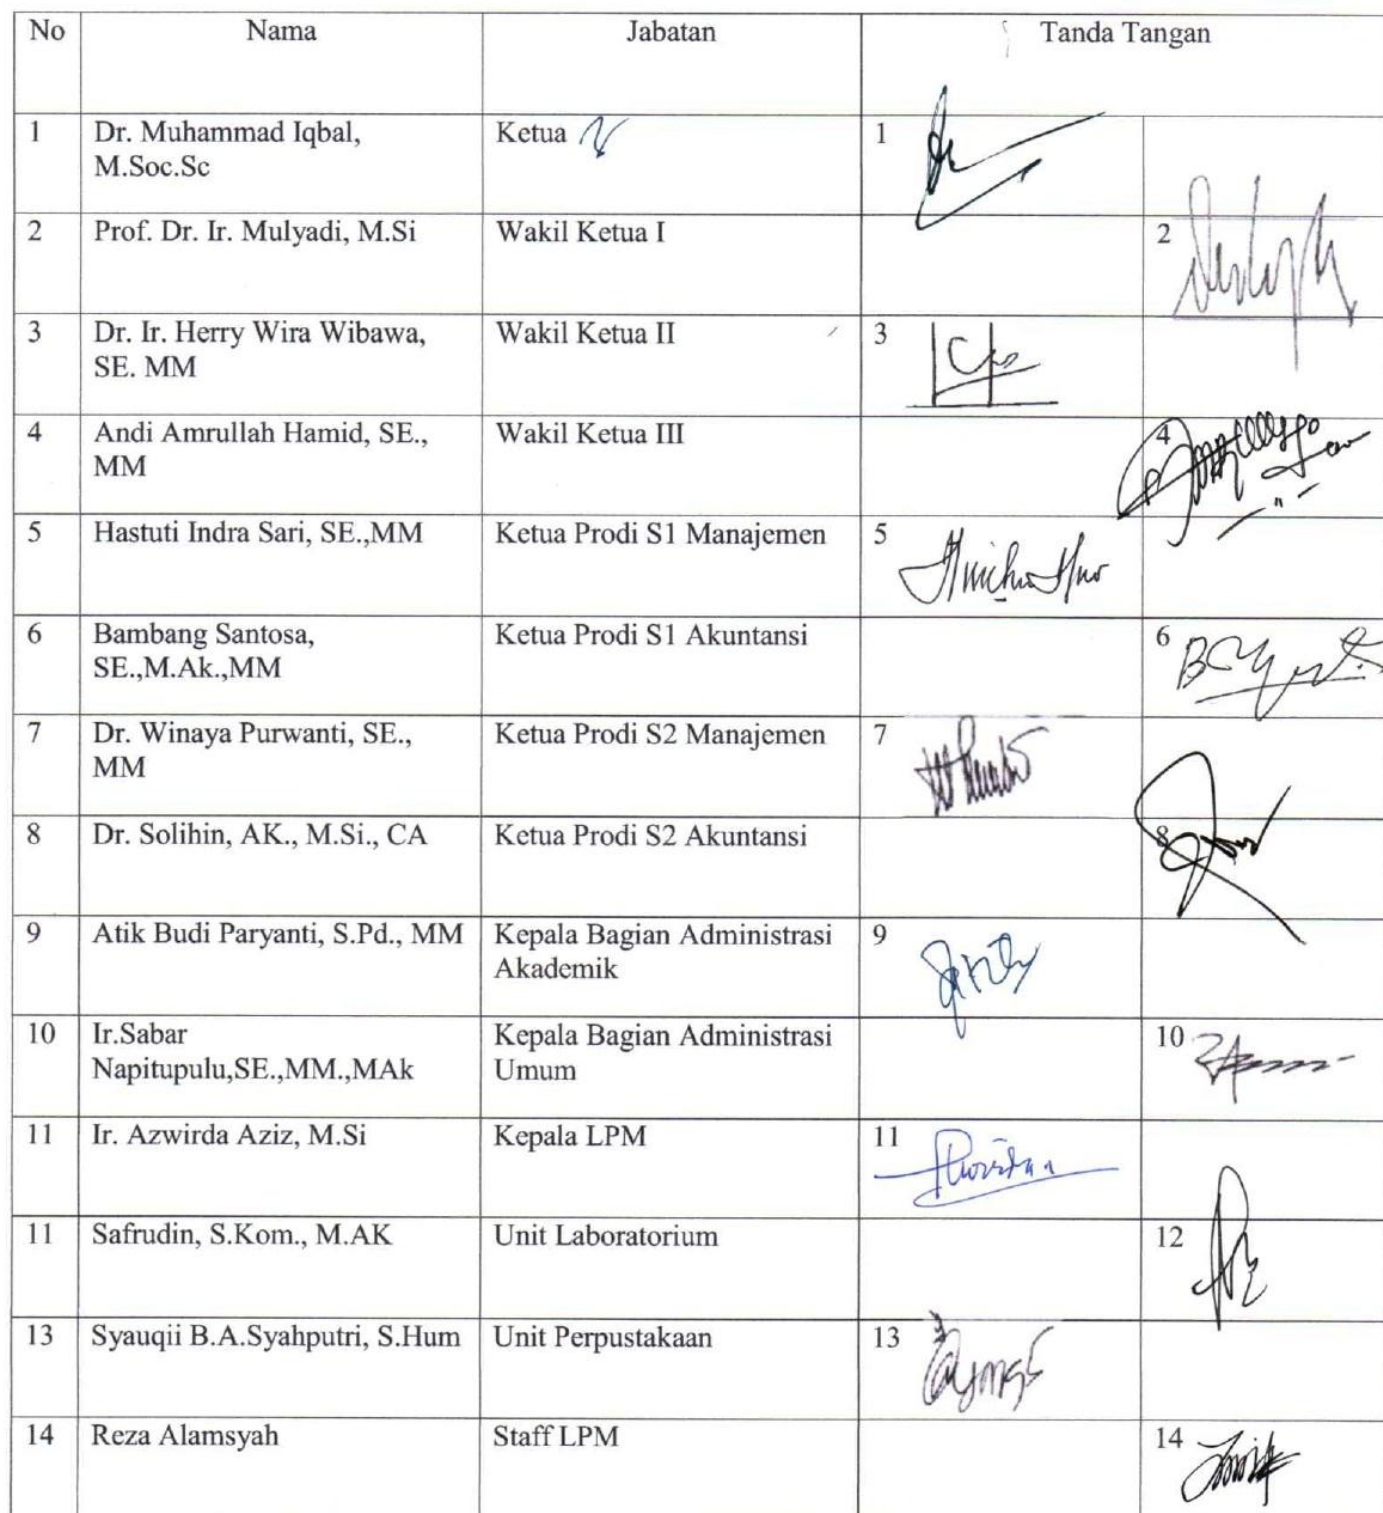 No Nama Jabatan Tanda Tangan
1 Dr. Muhammad Iqbal, Ketua 1
M.Soc.Sc
2 Prof. Dr. Ir. Mulyadi, M.Si Wakil Ketua I 2
3 Dr. Ir. Herry Wira Wibawa, Wakil Ketua II 3
SE. MM
4 Andi Amrullah Hamid, SE., Wakil Ketua III 4
MM
5 Hastuti Indra Sari, SE.,MM Ketua Prodi S1 Manajemen 5
6 Bambang Santosa, Ketua Prodi S1 Akuntansi 6
SE.,M.Ak.,MM
7 Dr. Winaya Purwanti, SE., Ketua Prodi S2 Manajemen 7
MM
8 Dr. Solihin, AK., M.Si., CA Ketua Prodi S2 Akuntansi 8
9 Atik Budi Paryanti, S.Pd., MM Kepala Bagian Administrasi 9
Akademik
10 Ir.Sabar Kepala Bagian Administrasi 10
Napitupulu,SE.,MM.,MAk Umum
11 Ir. Azwirda Aziz, M.Si Kepala LPM 11
11 Safrudin, S.Kom., M.AK Unit Laboratorium 12
13 Syauqii B.A.Syahputri, S.Hum Unit Perpustakaan 13
14 Reza Alamsyah Staff LPM 14